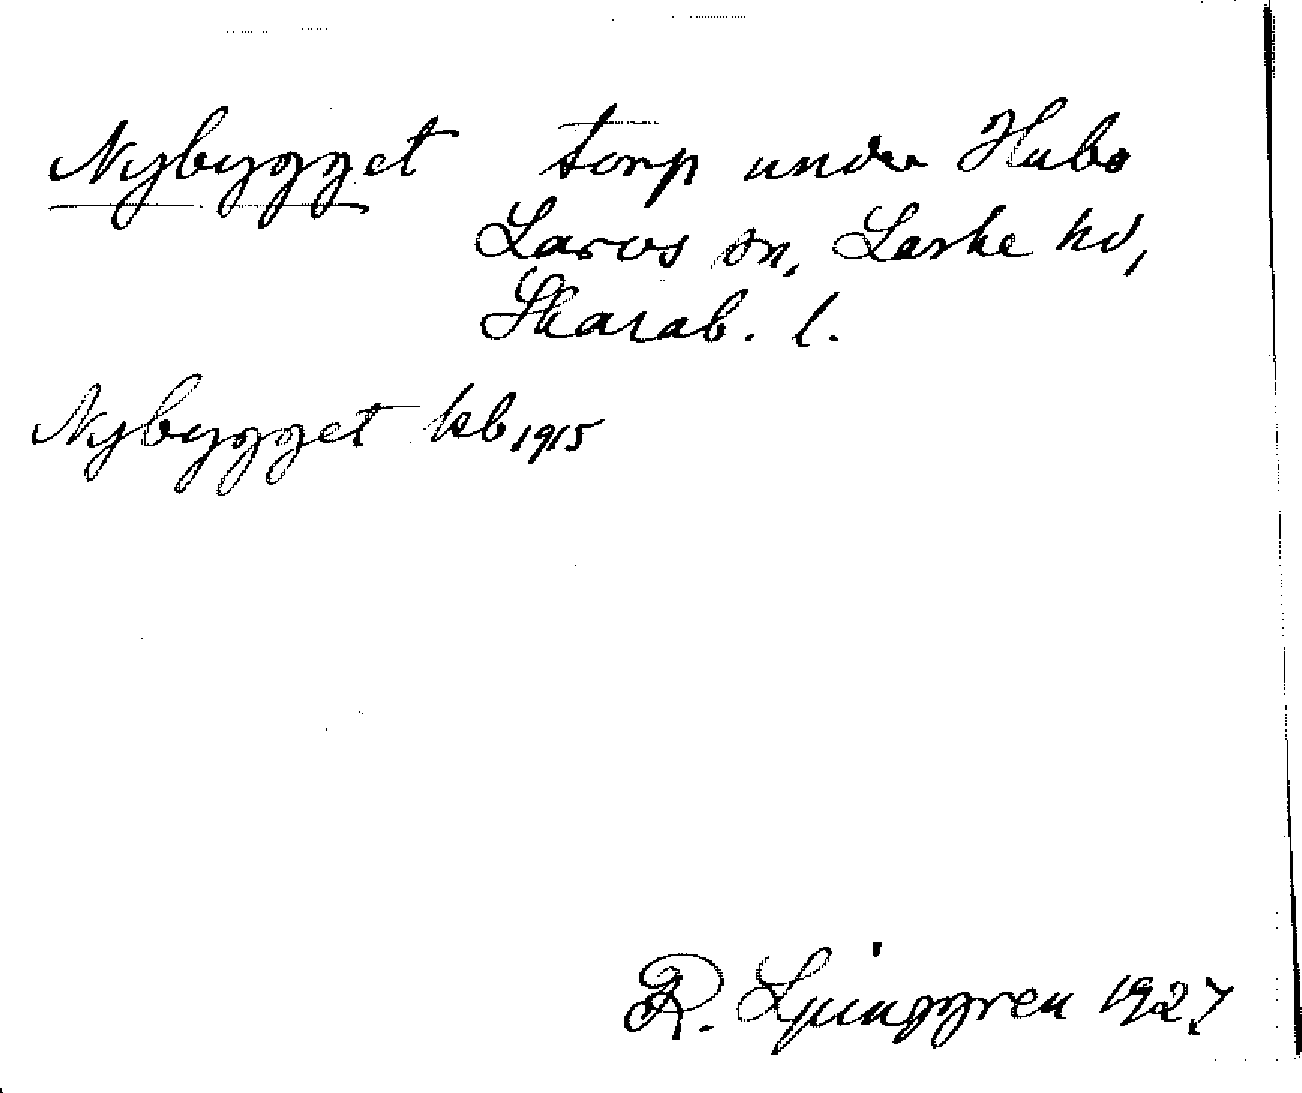 Nybygget torp under Hubo
Larvs sn, Laske hd,
Skarab. l.
Nybygget kb 1915
R. Ljunggren 1927